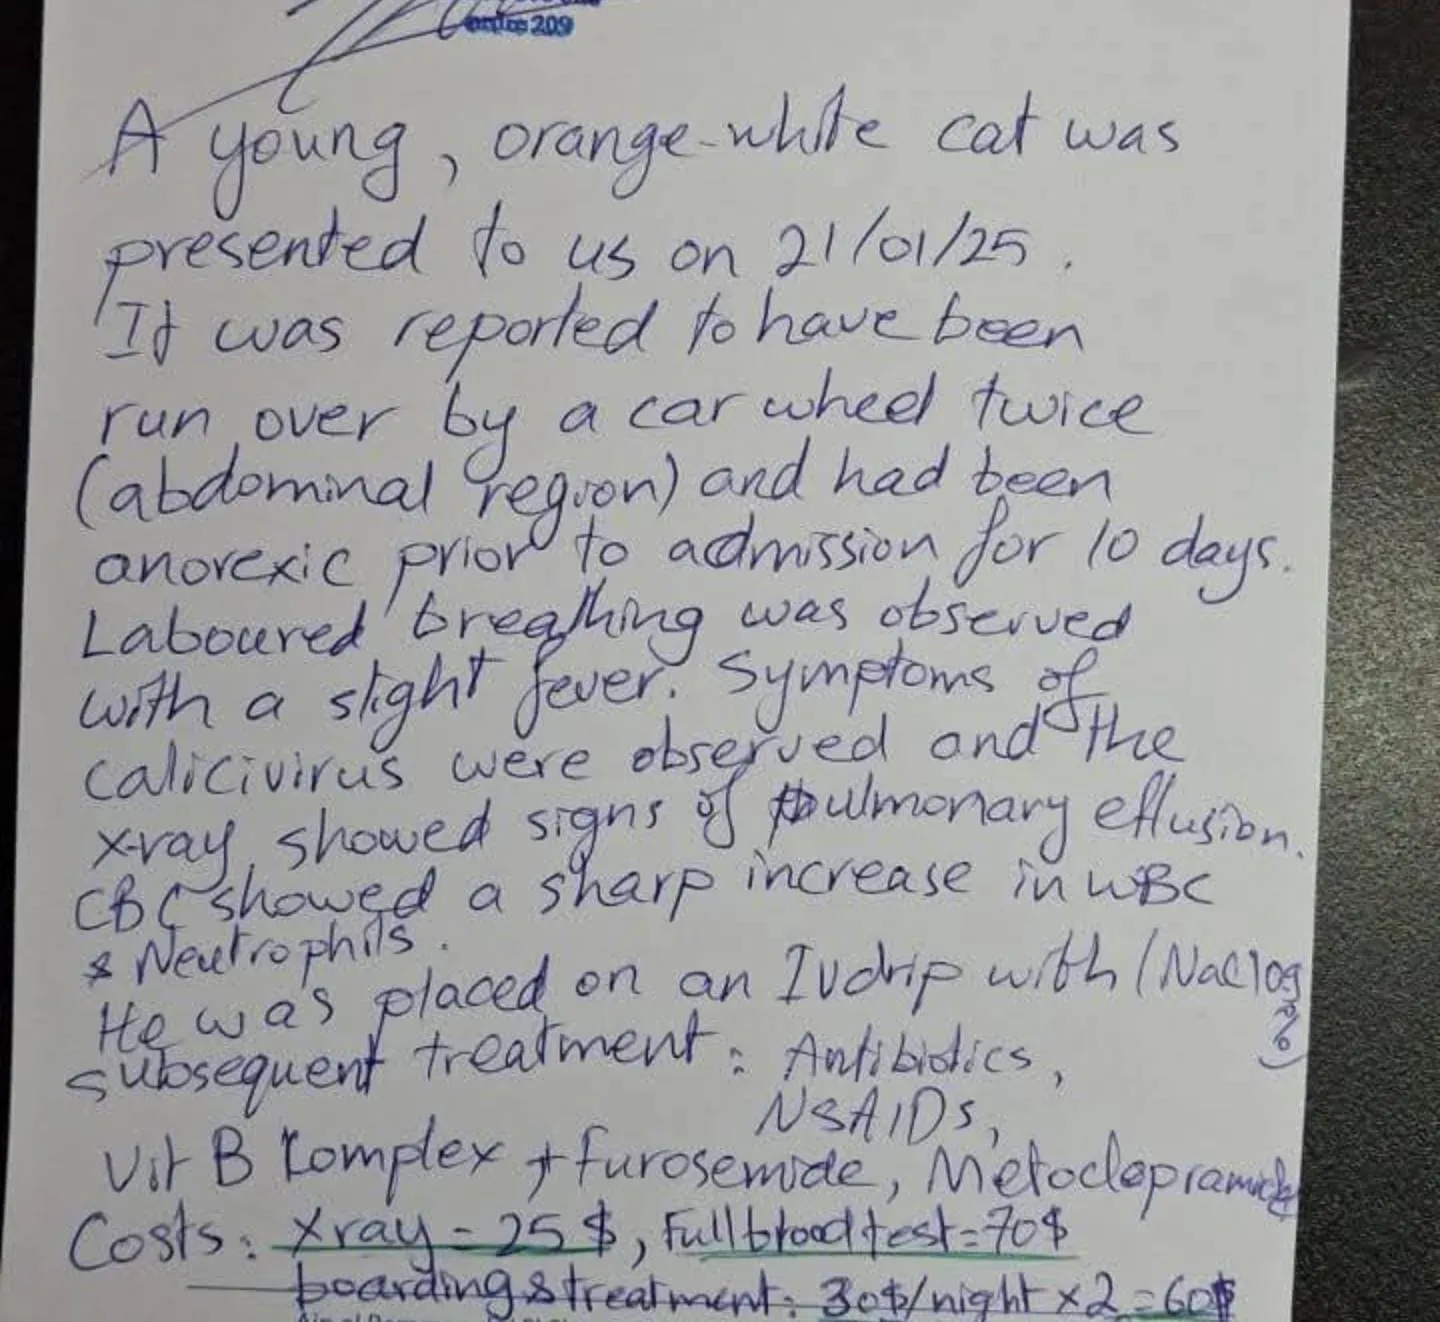 ordre 209
A young, orange-white cat was
presented to us on 21/01/25.
It was reported to have been
run over by a car wheel twice
(abdominal region) and had been
anorexic prior to admission for 10 days.
Laboured breathing was observed
with a slight fever. Symptoms of
calicivirus were observed and the
x-ray showed signs of pulmonary effusion.
CBC showed a sharp increase in WBC
& Neutrophils.
He was placed on an IV drip with (NaCl 0,9
%)
subsequent treatment: Antibiotics,
NSAIDs,
Vit B Komplex + furosemide, Metoclopramide
Costs: Xray - 25 $, Full blood test = 70$
boarding & treatment: 30$/night x2 = 60$